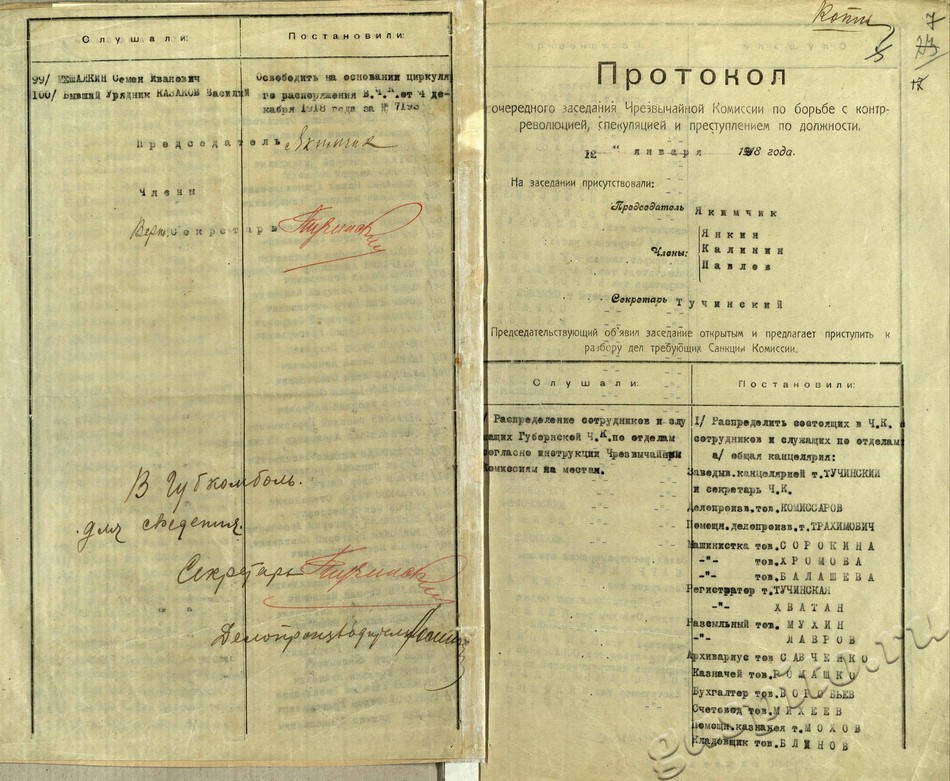 Слушали:
Постановили:
99/ МЕШАЛКИН Семен Иванович
100/ Бывший Урядник КАЗАКОВ Василий
Освободить на основании циркуля
го распоряжения В.Ч.К. от 4 де-
кабря 1918 года за № 7193
Председатель Якимчик
Члены
Верно: Секретарь Тучинский
В Губкомболь.
для сведения.
Секретарь Тучинский
Делопроизводитель
Копия
7
Протокол
очередного заседания Чрезвычайной Комиссии по борьбе с контр-
революцией, спекуляцией и преступлением по должности.
12 " января 1918 года.
На заседании присутствовали:
Председатель Якимчик
Члены:
Янкин
Калинин
Павлов
Секретарь Тучинский
Председательствующий об'явил заседание открытым и предлагает приступить к
разбору дел требующих Санкции Комиссии.
Слушали:
Постановили:
/ Распределение сотрудников и слу
жащих Губернской Ч.К. по отделам
согласно инструкции Чрезвычайным
Комиссиям на местах.
I/ Распределить состоящих в Ч.К.
сотрудников и служащих по отделам:
а/ общая канцелярия:
Заведыв.канцелярией т.ТУЧИНСКИЙ
и секретарь Ч.К.
Делопроизв.тов.КОМИССАРОВ
Помощн.делопроизв.т.ТРАХИМОВИЧ
Машинистка тов.СОРОКИНА
-"- тов.ХРОМОВА
-"- тов.БАЛАШЕВА
Регистратор т.ТУЧИНСКАЯ
-"- ХВАТАН
Разсыльный тов. МУХИН
-"- ЛАВРОВ
Архивариус тов САВЧЕНКО
Казначей тов.РОМАШКО
Бухгалтер тов.ВОРОБЬЕВ
Счетовод тов.МИХЕЕВ
Помощн.казначея т.МОХОВ
Кладовщик тов.БЛИНОВ